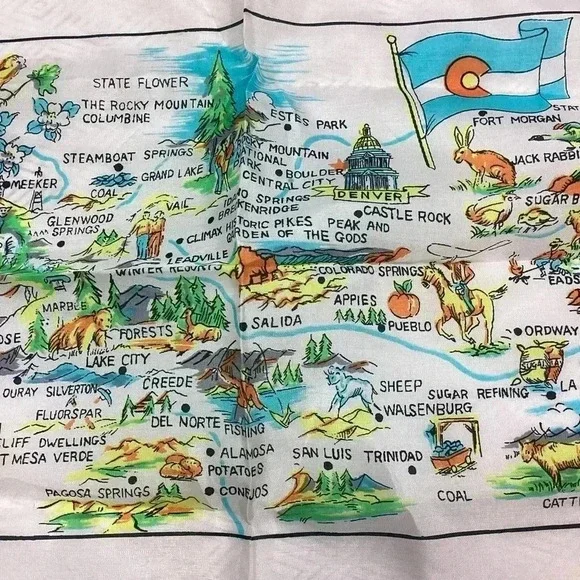 STATE FLOWER
THE ROCKY MOUNTAIN
COLUMBINE
ESTES PARK
FORT MORGAN
STAT
STEAMBOAT SPRINGS
MOUNTAIN
NATIONAL
PARK
JACK RABBI
MEEKER
COAL
GRAND LAKE
BOULDER
CENTRAL CITY
DENVER
SUGAR B
VAIL
SPRINGS
CASTLE ROCK
GLENWOOD
SPRINGS
CLIMAX
TORIC PIKES PEAK AND
DEN OF THE GODS
LEADVILLE
WINTER RESORTS
COLORADO SPRINGS
EADS
MARBLE
APPIES
FORESTS
SALIDA
PUEBLO
ORDWAY
OSE
LAKE CITY
SUGAR
OURAY
SILVERTON
CREEDE
SHEEP
SUGAR REFINING
LA
FLUORSPAR
WALSENBURG
DEL NORTE
FISHING
CLIFF DWELLINGS
T MESA VERDE
ALAMOSA
POTATOES
SAN LUIS
TRINIDAD
PAGOSA SPRINGS
CONEJOS
COAL
CATT